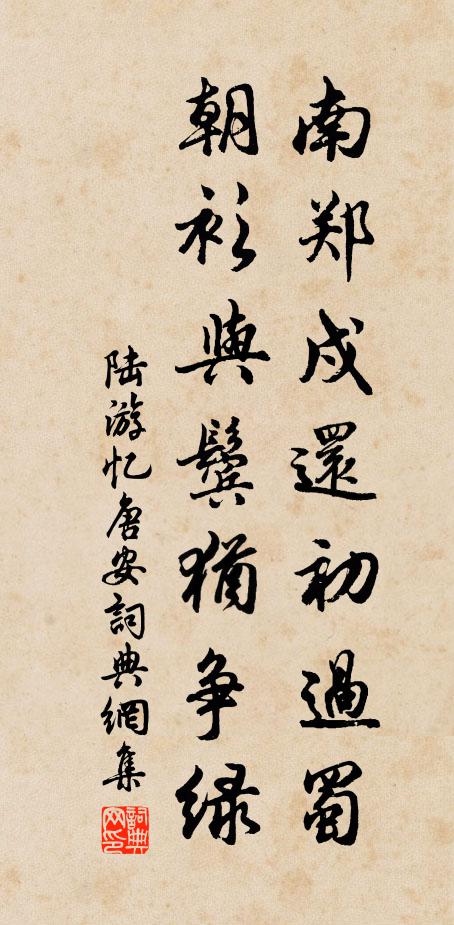 南郑戍還初過蜀
朝衫與鬢猶争緑
陆游忆唐安詞典網集
詞典网印